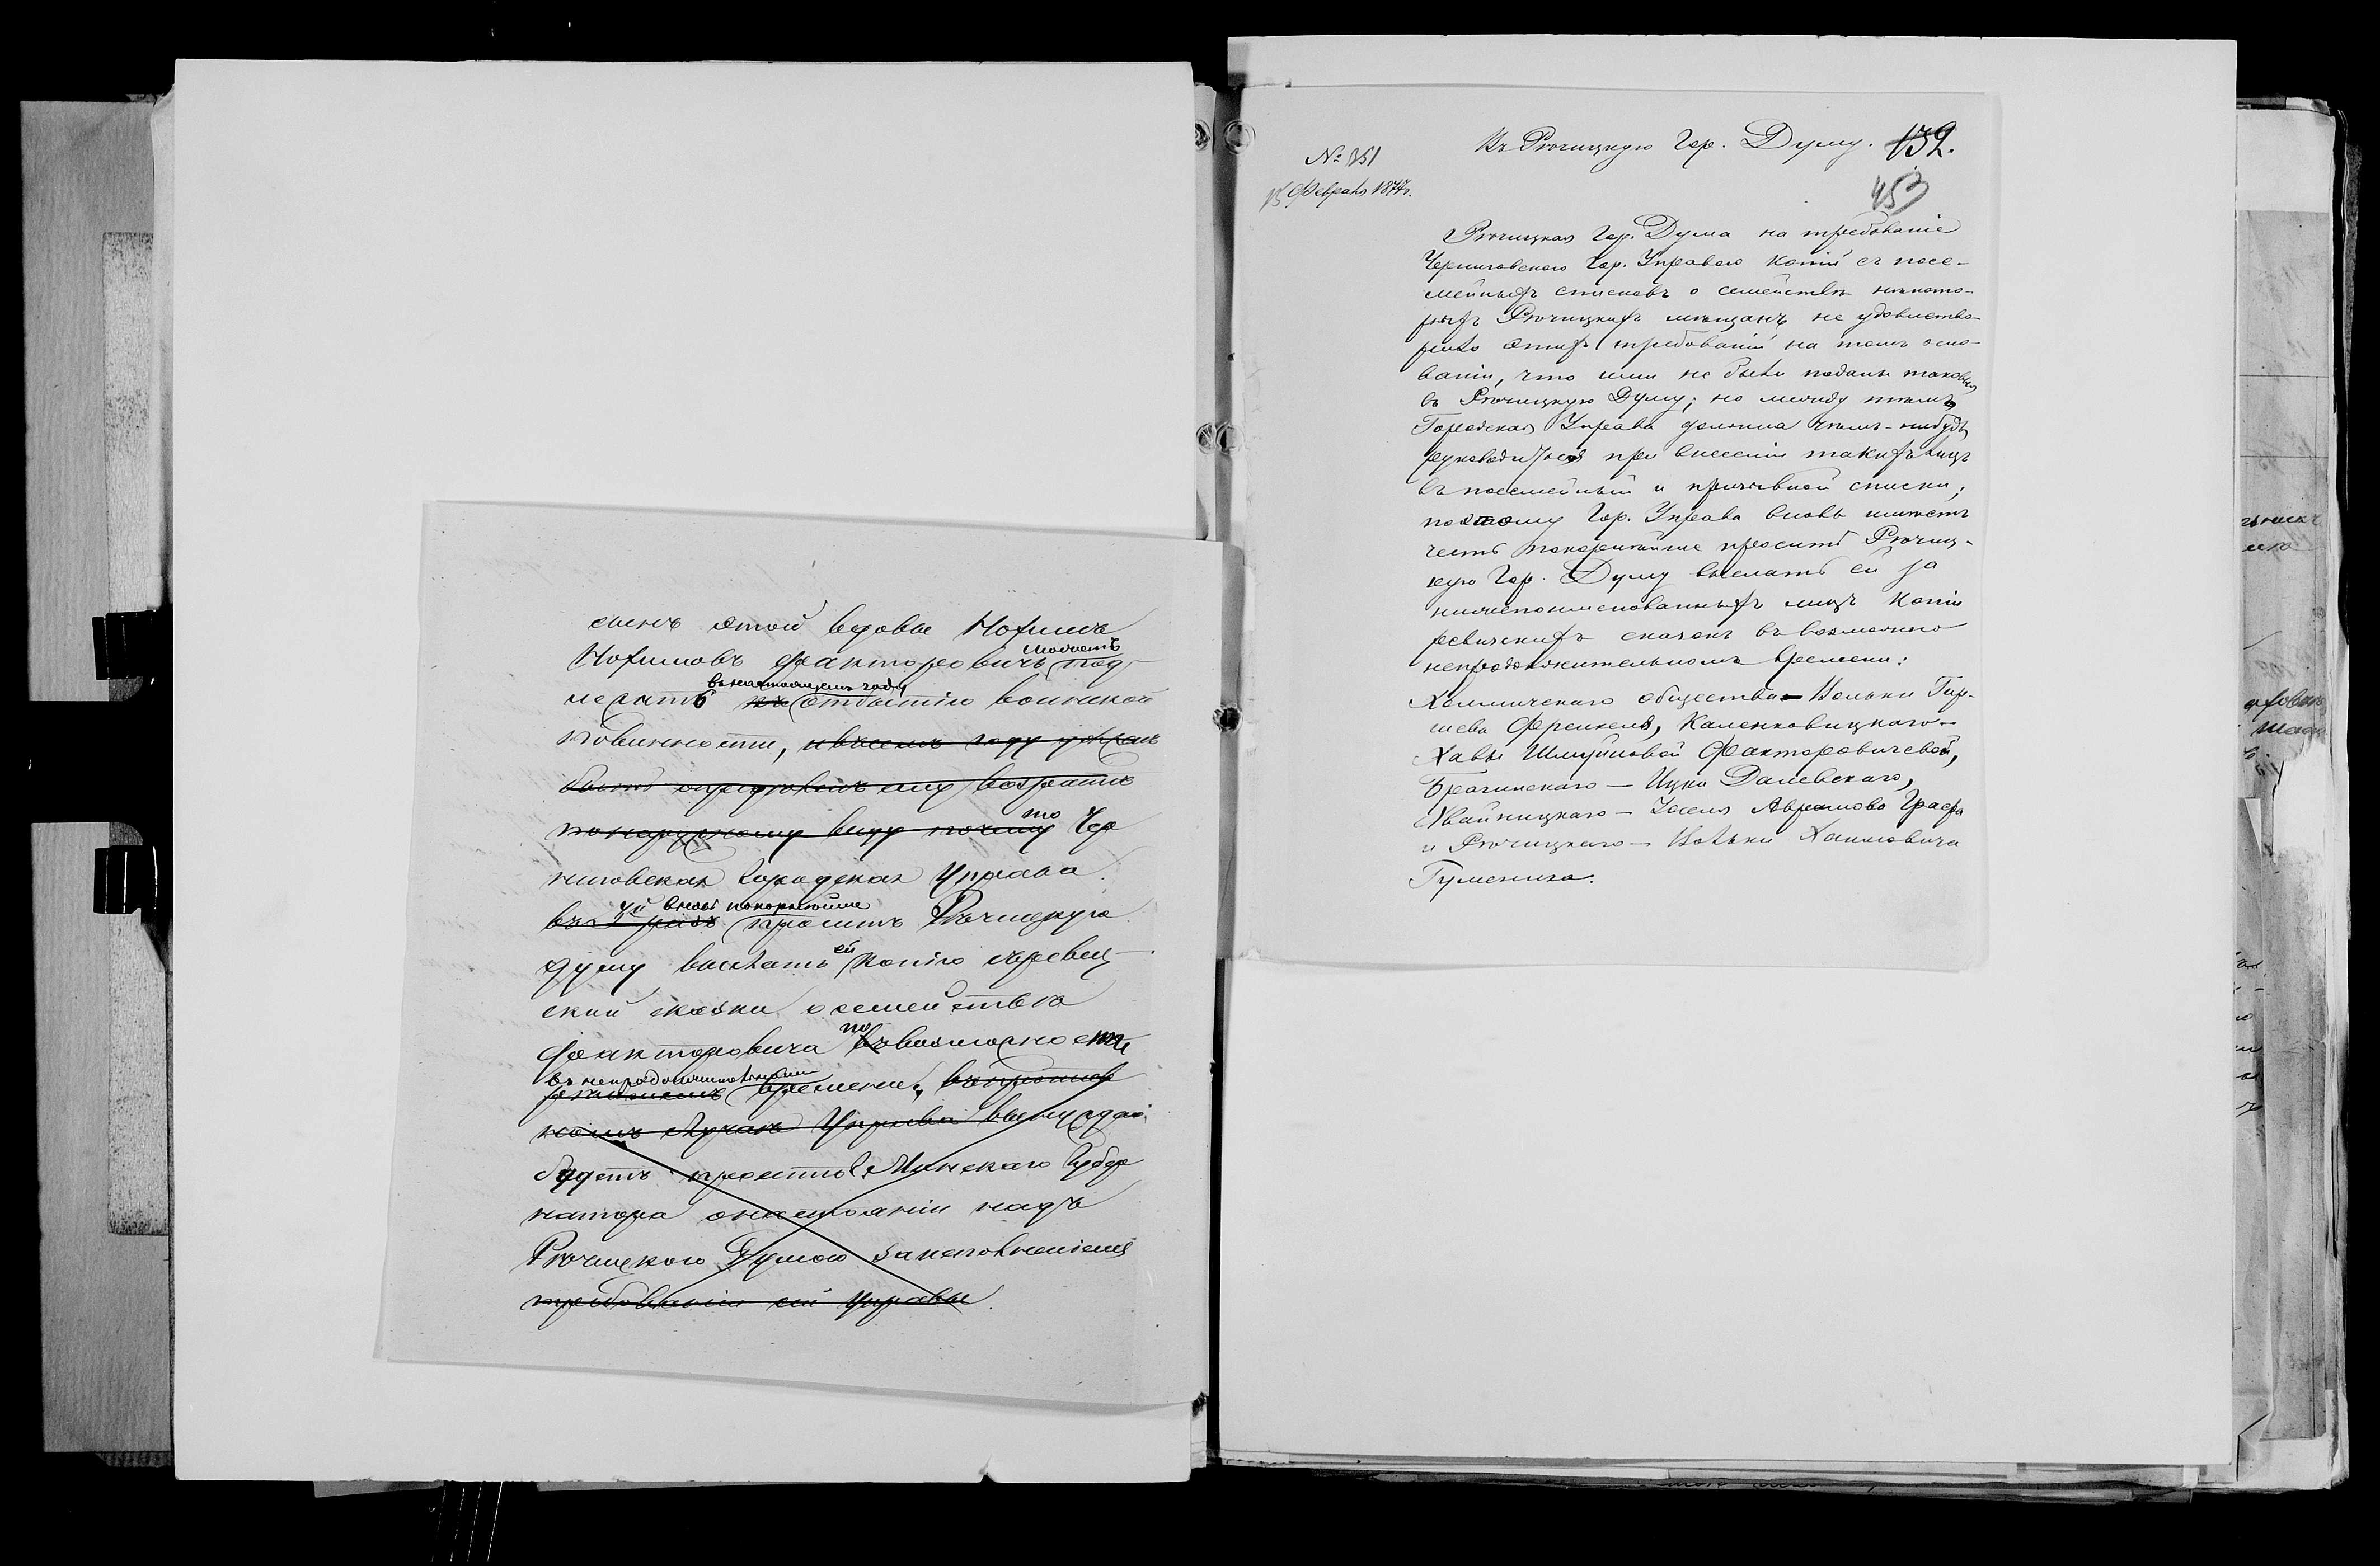 сынъ этой вдовы Нохимъ
Нохимовъ Факторовичъ можетъ под-
лежать въ настоящемъ году къ отбытію воинской
повинности, и въ семъ году долженъ
быть опредѣленъ ему возрастъ
по наружному виду почему то Чер
ниговская Городская Управа
въ 4й разъ вновь покорнѣйше проситъ Рѣчицкую
Думу выслать ей копію съ ревиз-
ской сказки о семействѣ
Факторовича по возможности
въ непродолжительномъ времени, въ против
номъ случаѣ Управа вынуждена
будетъ просить Минскаго Губер
натора о настояніи надъ
Рѣчицкою Думою за неисполненіемъ
требованія сей Управы.
Въ Рѣчицкую Гор. Думу. 132.
№ 351
453
15 Февраля 1877 г.
Рѣчицкая Гор. Дума на требованіе
Черниговской Гор. Управою копій съ посе-
мейныхъ списковъ о семействѣ нѣкото-
рыхъ Рѣчицкихъ мѣщанъ не удовлетво-
рило этихъ требованій на томъ осно-
ваніи, что ими не были поданы таковыя
въ Рѣчицкую Думу; но между тѣмъ
Городская Управа должна чѣмъ-нибудь
руководиться при внесеніи такихъ лицъ
въ посемейный и призывной списки;
поэтому Гор. Управа вновь имѣетъ
честь покорнѣйше просить Рѣчиц-
кую Гор. Думу выслать ей за
нижепоименованныхъ лицъ копіи
ревизскихъ сказокъ въ возможно
непродолжительномъ времени:
Холмичскаго общества — Вольки Гир-
шева Френкеля, Каленковицкаго —
Хавы Шмуйловой Факторовичевой,
Брагинскаго — Ицки Далевскаго,
Хвайницкаго — Іоселя Абрамова Графа
и Рѣчицкаго — Вольки Хаимовича
Гуменика.